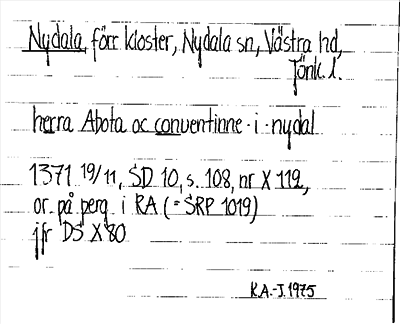 Nydala, förr kloster, Nydala sn, Västra hd,
Jönk. l.
herra Abota oc conventinne · i · nydal
1371 19/11, SD 10, s. 108, nr X 112,
or. på perg. i RA (= SRP 1019)
jfr DS X 80
R.A.-J. 1975